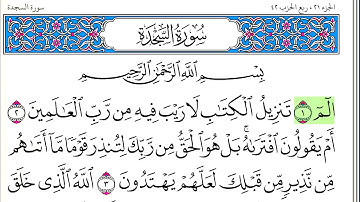 الجزء ٢١، ربع الحزب ٤٢
سورة السجدة
سُورَةُ السَّجْدَةِ
بِسْمِ اللَّهِ الرَّحْمَٰنِ الرَّحِيمِ
الٓمٓ ١ تَنزِيلُ الْكِتَابِ لَا رَيْبَ فِيهِ مِن رَّبِّ الْعَالَمِينَ ٢
أَمْ يَقُولُونَ افْتَرَاهُ ۚ بَلْ هُوَ الْحَقُّ مِن رَّبِّكَ لِتُنذِرَ قَوْمًا مَّا أَتَاهُم
مِّن نَّذِيرٍ مِّن قَبْلِكَ لَعَلَّهُمْ يَهْتَدُونَ ٣ اللَّهُ الَّذِي خَلَقَ